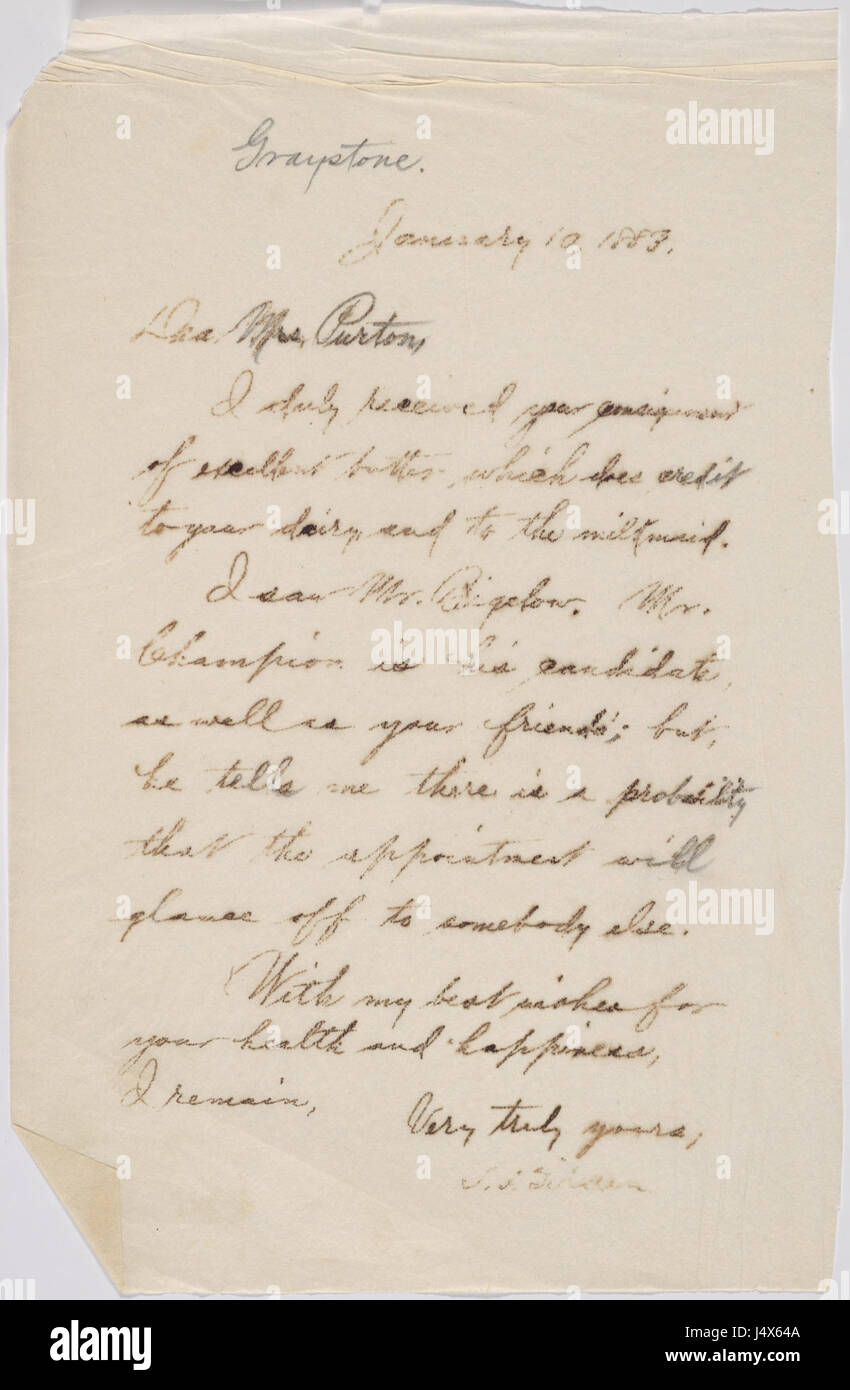 Graystone.
January 10, 1883.
Dea Mrs. Purton,
I duly received your consignment
of excellent butter which does credit
to your dairy and to the milkmaid.
I saw Mr. Bigelow. Mr.
Champion is his candidate,
as well as your friends'; but,
he tells me there is a probability
that the appointment will
glance off to somebody else.
With my best wishes for
your health and happiness,
I remain,
Very truly yours,
S. J. Tilden
alamy stock photo
J4X64A
www.alamy.com